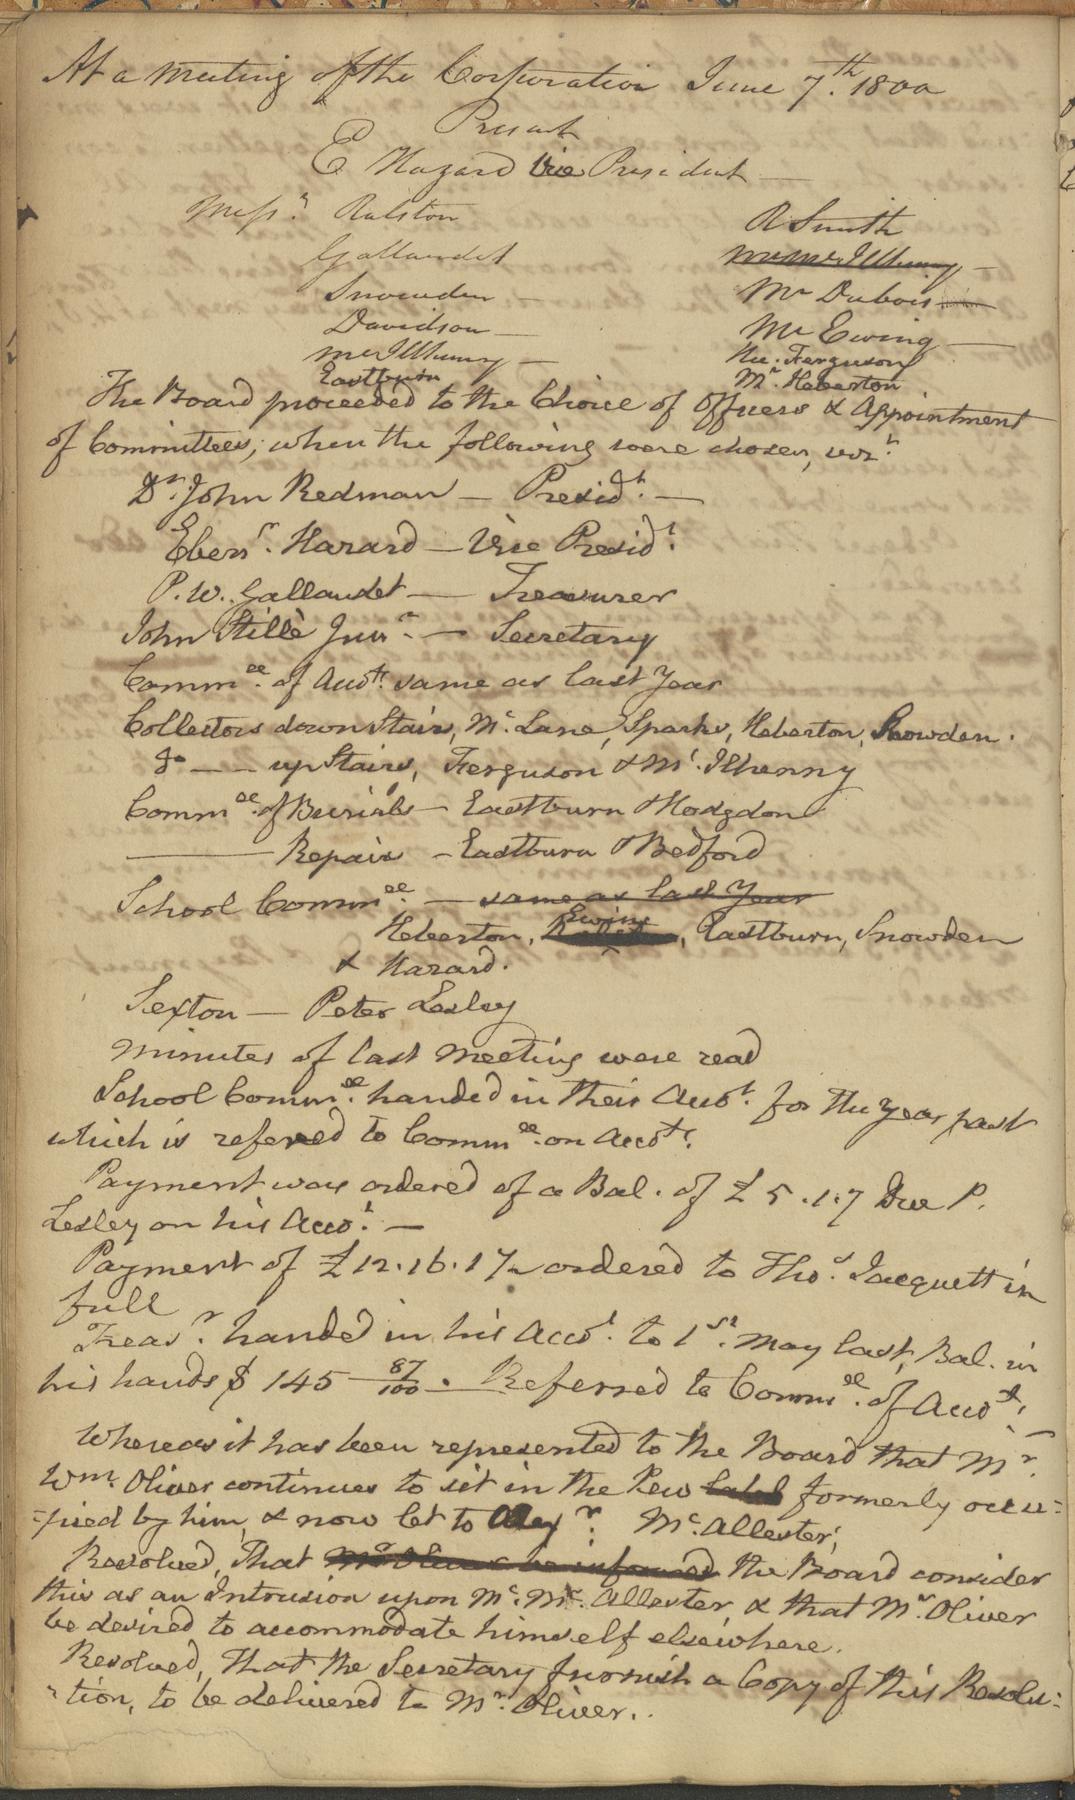 At a meeting of the Corporation June 7th. 1800
Present
E Hazard Vice President —
Messrs. Ralston
Gallaudet
Snowden —
Davidson —
McIlhenny —
Eastburn
R Smith
Mr McIlhenny —
Mr Dubois —
Mr Ewing —
Mr. Ferguson
Mr. Heberton
The Board proceeded to the Choice of Officers & Appointment
of Committees, when the following were chosen, vizt.
Dr. John Redman — Presidt. —
Ebenr. Hazard — Vice Presidt.
P. W. Gallaudet — Treasurer
John Stillè Junr. — Secretary
Commee. of Accots. same as last Year
Collectors down Stairs, Mc.Lane, Sparks, Heberton, Snowden.
Do — — up Stairs, Ferguson & Mc.Ilhenny
Commee. of Burials — Eastburn & Hodgdon
——— Repairs — Eastburn & Bedford
School Commee. — same as last Year
Heberton, Ewing, Eastburn, Snowden
& Hazard.
Sexton — Peter Lesley
Minutes of last Meeting were read
School Commee. handed in their Accot. for the year past
which is refered to Commee. on Accots.
Payment was ordered of a Bal. of £ 5.1.7 Due P.
Lesley on his Accot. —
Payment of £12.16.17 ordered to Thos. Jacquett in
full
Treasr. handed in his Accot. to 1st. May last, Bal. in
his hands $ 145 87/100. Referred to Commee. of Accots.
Whereas it has been represented to the Board that Mr.
Wm. Oliver continues to sit in the Pew formerly occu=
=pied by him, & now let to Alexr. Mc.Allester;
Resolved, That Mr. Oliver be informed the Board consider
this as an Intrusion upon Mr. Mc. Allester, & that Mr. Oliver
be desired to accommodate himself elsewhere.
Resolved, That the Secretary furnish a Copy of this Resolu=
=tion, to be delivered to Mr. Oliver..